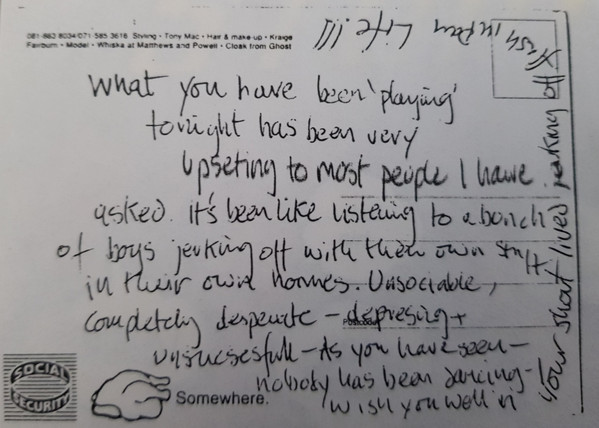 081-862 8034/071 585 3616 Styling • Tony Mac • Hair & make-up • Kraige
Fairburn • Model • Whiska at Matthews and Powell • Cloak from Ghost
What you have been 'playing'
tonight has been very
upseting to most people I have
asked. it's been like listening to a bonch
of boys jerking off with their own stuff
in their own homes. Unsociable,
completely desperate - depresing +
unsucsesfull - As you have seen -
nobody has been dancing -
wish you well in
your short lived
Life!!!
SOCIAL
SECURITY
Somewhere.